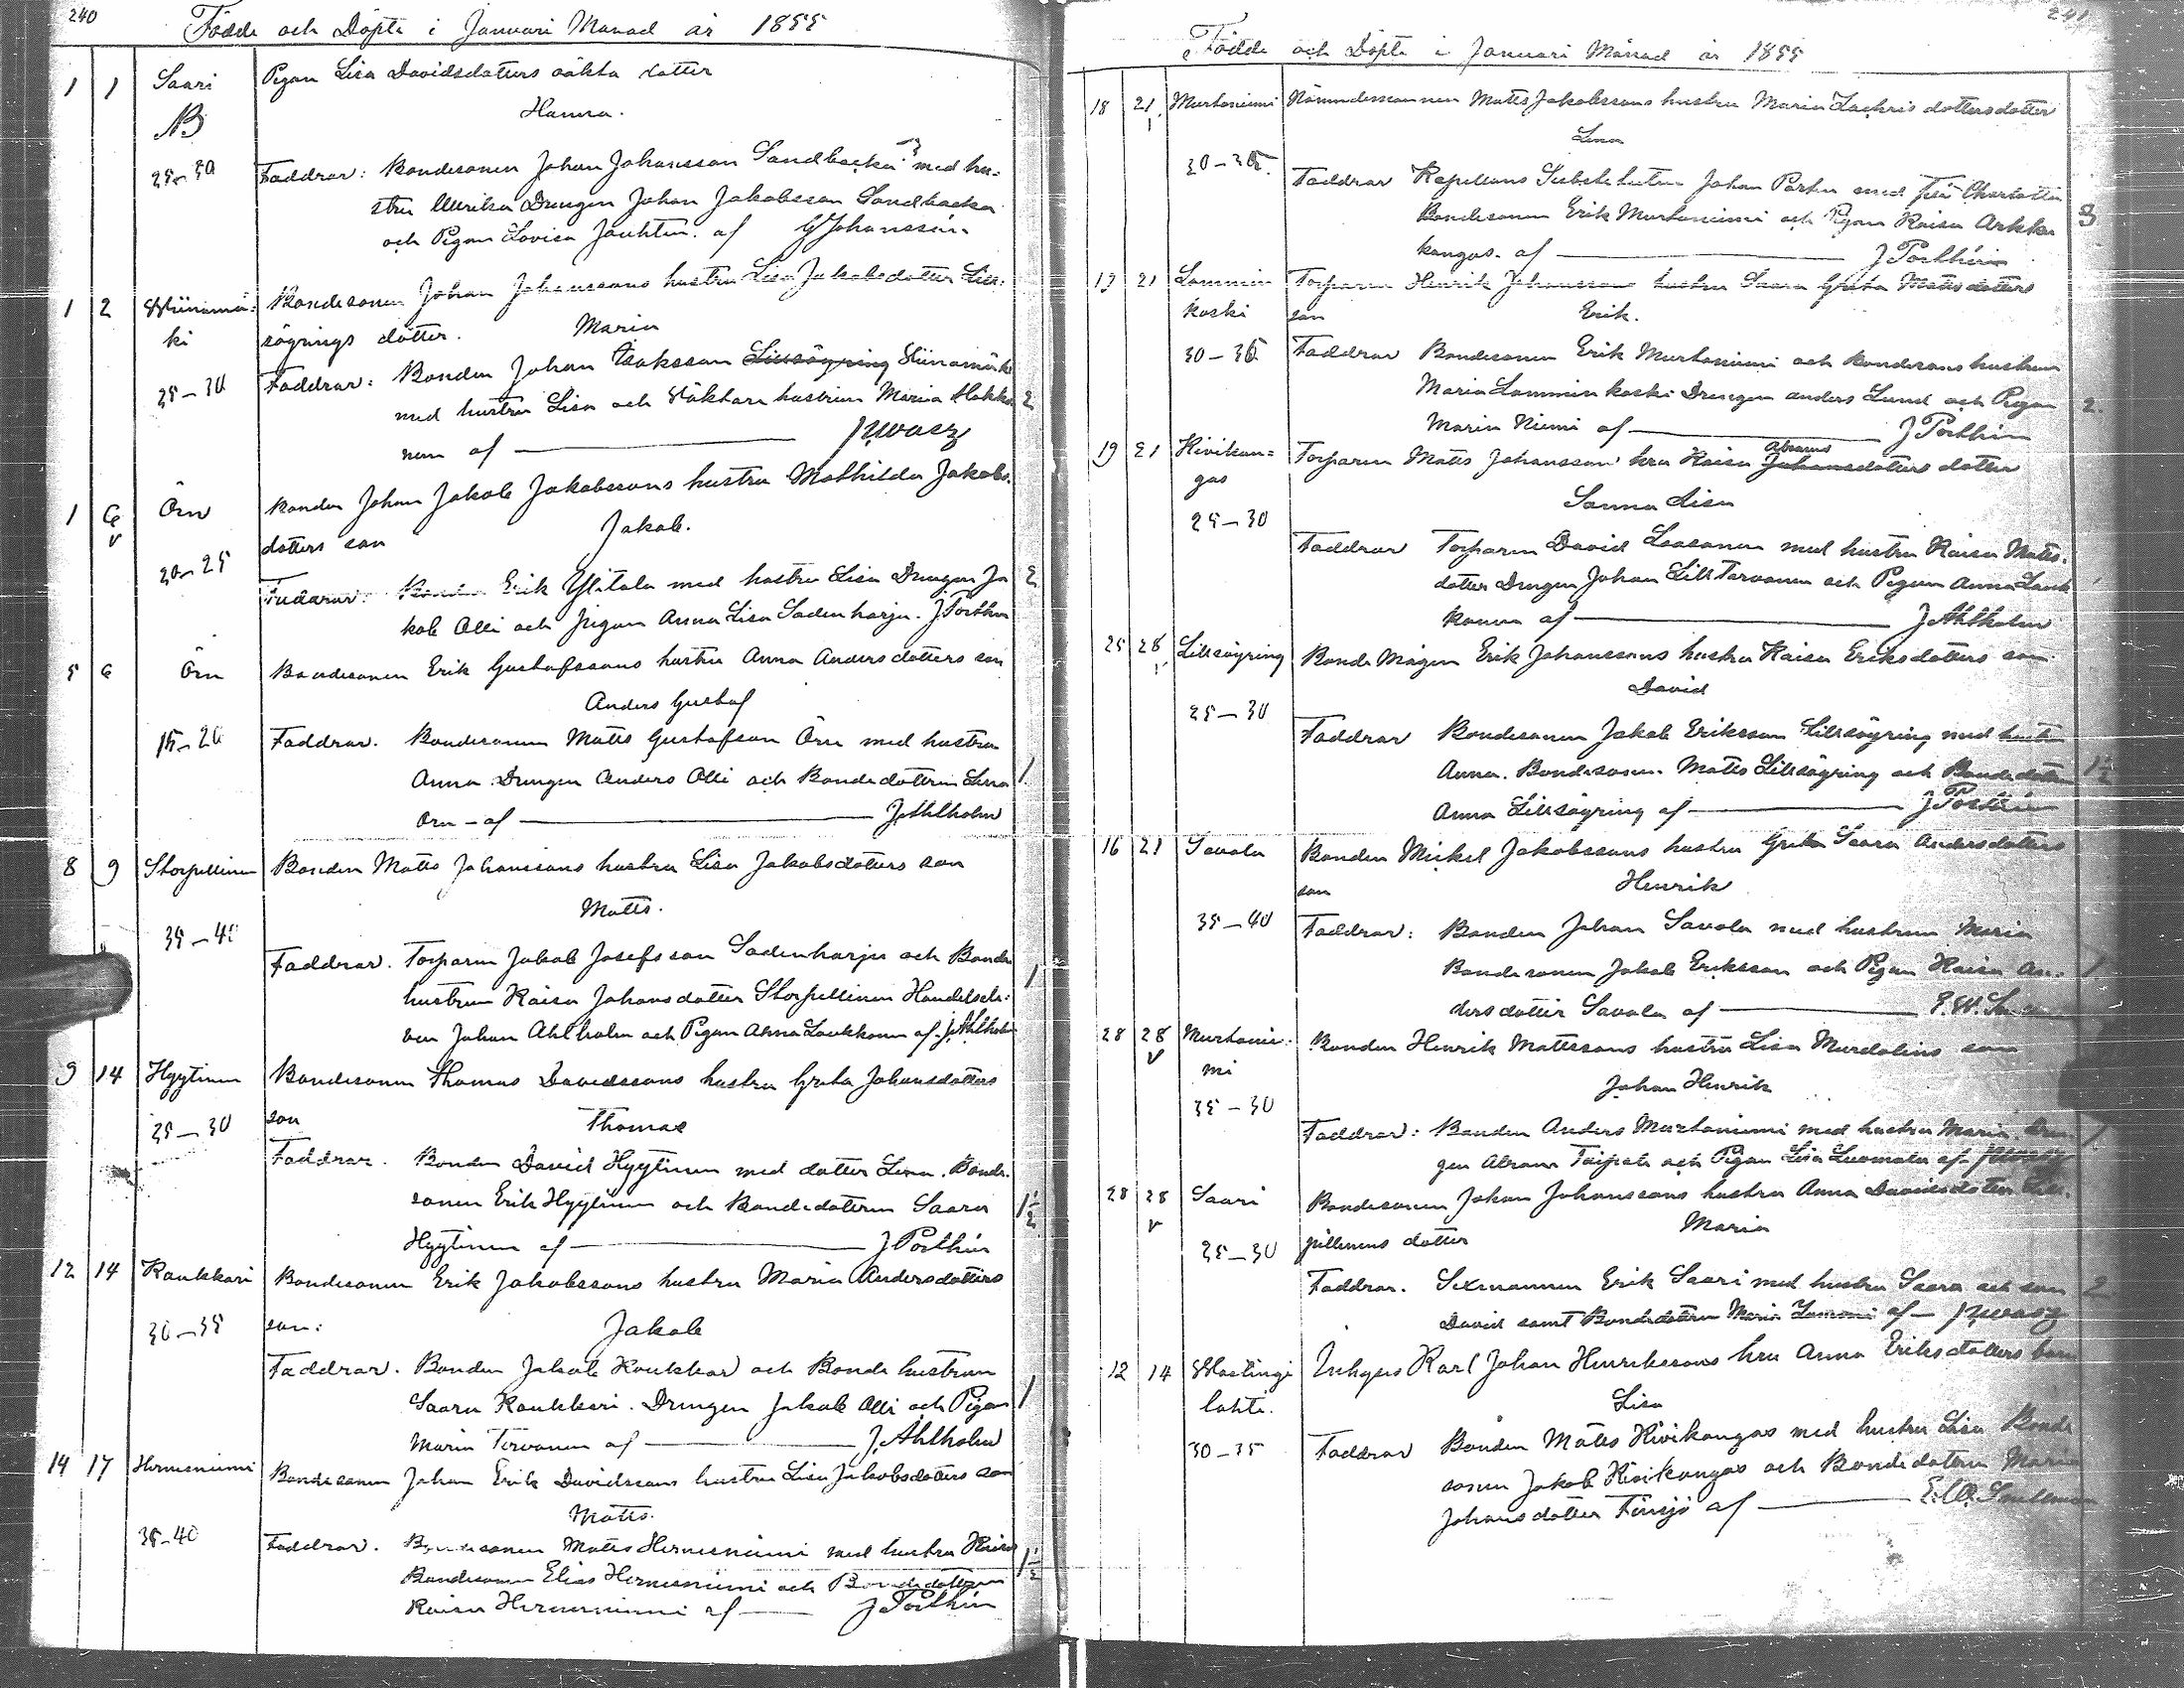 240
Födde och Döpte i Januari Månad år 1855
1 1 Saari Pigan Lisa Davidsdotters oäkta dotter
NB Hanna.
25-30 Faddrar: Bondesonen Johan Johansson Sandbacka med hu-
stru Ulrika Drengen Johan Jakobsson Sandbacka
och Pigan Lovisa Jauhten. af Johansson
1 2 Wiinamä- Bondesonen Johan Johanssons hustru Lisa Jakobsdotter Lill-
ki sögrings dotter. Maria
25-30 Faddrar: Bonden Johan Isaksson Lillsögring Wiinamäki
med hustru Lisa och hustrun Maria Hakka 2
nen af
1 6 Örn Bonden Johan Jakob Jakobssons hustru Mathilda Jakobs-
dotters son Jakob.
20-25 Faddrar: Bonden Erik Ylitalo med hustru Lisa Drengen Ja 2
kob Olli och pigan Anna Lisa Sadenharju. J Porthin
5 6 Örn Bondesonen Erik Gustafssons hustru Anna Andersdotters son
Anders Gustaf
15-20 Faddrar. Bondesonen Matts Gustafson Örn med hustru
Anna Drengen Anders Olli och Bondedottren Lena 1
Örn - af J Ahlholm
8 9 Storpellinen Bonden Matts Johanssons hustru Lisa Jakobsdotters son
Matts.
35-40 Faddrar. Torparen Jakob Josefsson Sadenharju och Bonde
hustrun Kaisa Johansdotter Storpellinen Handelsele- 1
ven Johan Ahlholm och Pigan Anna Laukkonen af J. Ahlholm
9 14 Hyytinen Bondesonen Thomas Davidssons hustru Greta Johansdotters
25-30 son Thomas
Faddrar. Bonden David Hyytinen med dotter Lena. Bonde-
sonen Erik Hyytinen och Bondedottren Saara 1 1/2
Hyytinen af J Porthin
12 14 Kaukkari Bondesonen Erik Jakobssons hustru Maria Andersdotters
30-35 son: Jakob
Faddrar. Bonden Jakob Koukkar och Bonde hustrun
Saara Kaukkari. Drengen Jakob Olli och Pigan 1
Maria Tervonen af J. Ahlholm
14 17 Hernesniemi Bondesonen Johan Erik Davidssons hustru Lisa Jakobsdotters son
Matts.
35-40 Faddrar. Bondesonen Matts Hernesniemi med hustru Kaisa 1 1/2
Bondesonen Elias Hernesniemi och Bondedottren
Kaisa Hernesniemi af J Porthin
241
Födde och Döpte i Januari Månad år 1855
18 21 Murtoniemi Nämndemannen Matts Jakobssons hustru Maria Zachrisdotters dotter
Lena
30-35 Faddrar Kapellans Substituten Johan Porthin med fru Charlotta
Bondesonen Erik Murtoniemi och Pigan Kaisa Arkku 3
kangas. af J Porthin
17 21 Lammin Torparen Henrik Johanssons hustru Saara Greta Mattsdotters
koski son Erik.
30-35 Faddrar Bondesonen Erik Murtoniemi och bondesons hustrun
Maria Lamminkoski Drengen Anders Lund och Pigan 2.
Maria Niemi af J Porthin
19 21 Kivikan- Torparen Matts Johansson hru Kaisa Abrams Johansdotters dotter
gas Sanna Lisa
25-30
Faddrar Torparen David Isosonen med hustru Kaisa Matts-
dotter Drengen Johan Lill Tarvonen och Pigan Anna Lauk 1
konen af J Ahlholm
25 28 Lillsögring Bonde Mågen Erik Johanssons hustru Kaisa Eriksdotters son
David
25-30
Faddrar Bondesonen Jakob Eriksson Lillsögring med hustru
Anna. Bondesonen Matts Lillsögring och Bondedottren 1 1/2
Anna Lillsögring af J Porthin
16 21 Savola Bonden Mickel Jakobssons hustru Greta Saara Andersdotters
son Henrik
35-40 Faddrar: Bonden Johan Savola med hustrun Maria
Bondesonen Jakob Eriksson och Pigan Kaisa An- 1
dersdotter Savola af
28 28 Murtonie- Bonden Henrik Mattssons hustru Lisa Murdolins son
mi Johan Henrik
25-30
Faddrar: Bonden Anders Murtoniemi med hustru Maria. Dren 1
gen Abram Taipale och Pigan Lisa Luomala af
28 28 Saari Bondesonen Johan Johanssons hustru Anna Davidsdotter Lill-
25-30 pellinens dotter Maria
Faddrar. Sexmannen Erik Saari med hustru Saara och son 2
David samt Bondedottren Maria Lammi af
12 14 Wastingi Inhyses Karl Johan Henrikssons hru Anna Eriksdotters barn
lahti. Lisa
30-35 Faddrar Bonden Matts Kivikangas med hustru Lisa Bonde
sonen Jakob Kivikangas och Bondedottren Maria
Johansdotter Finsjö af